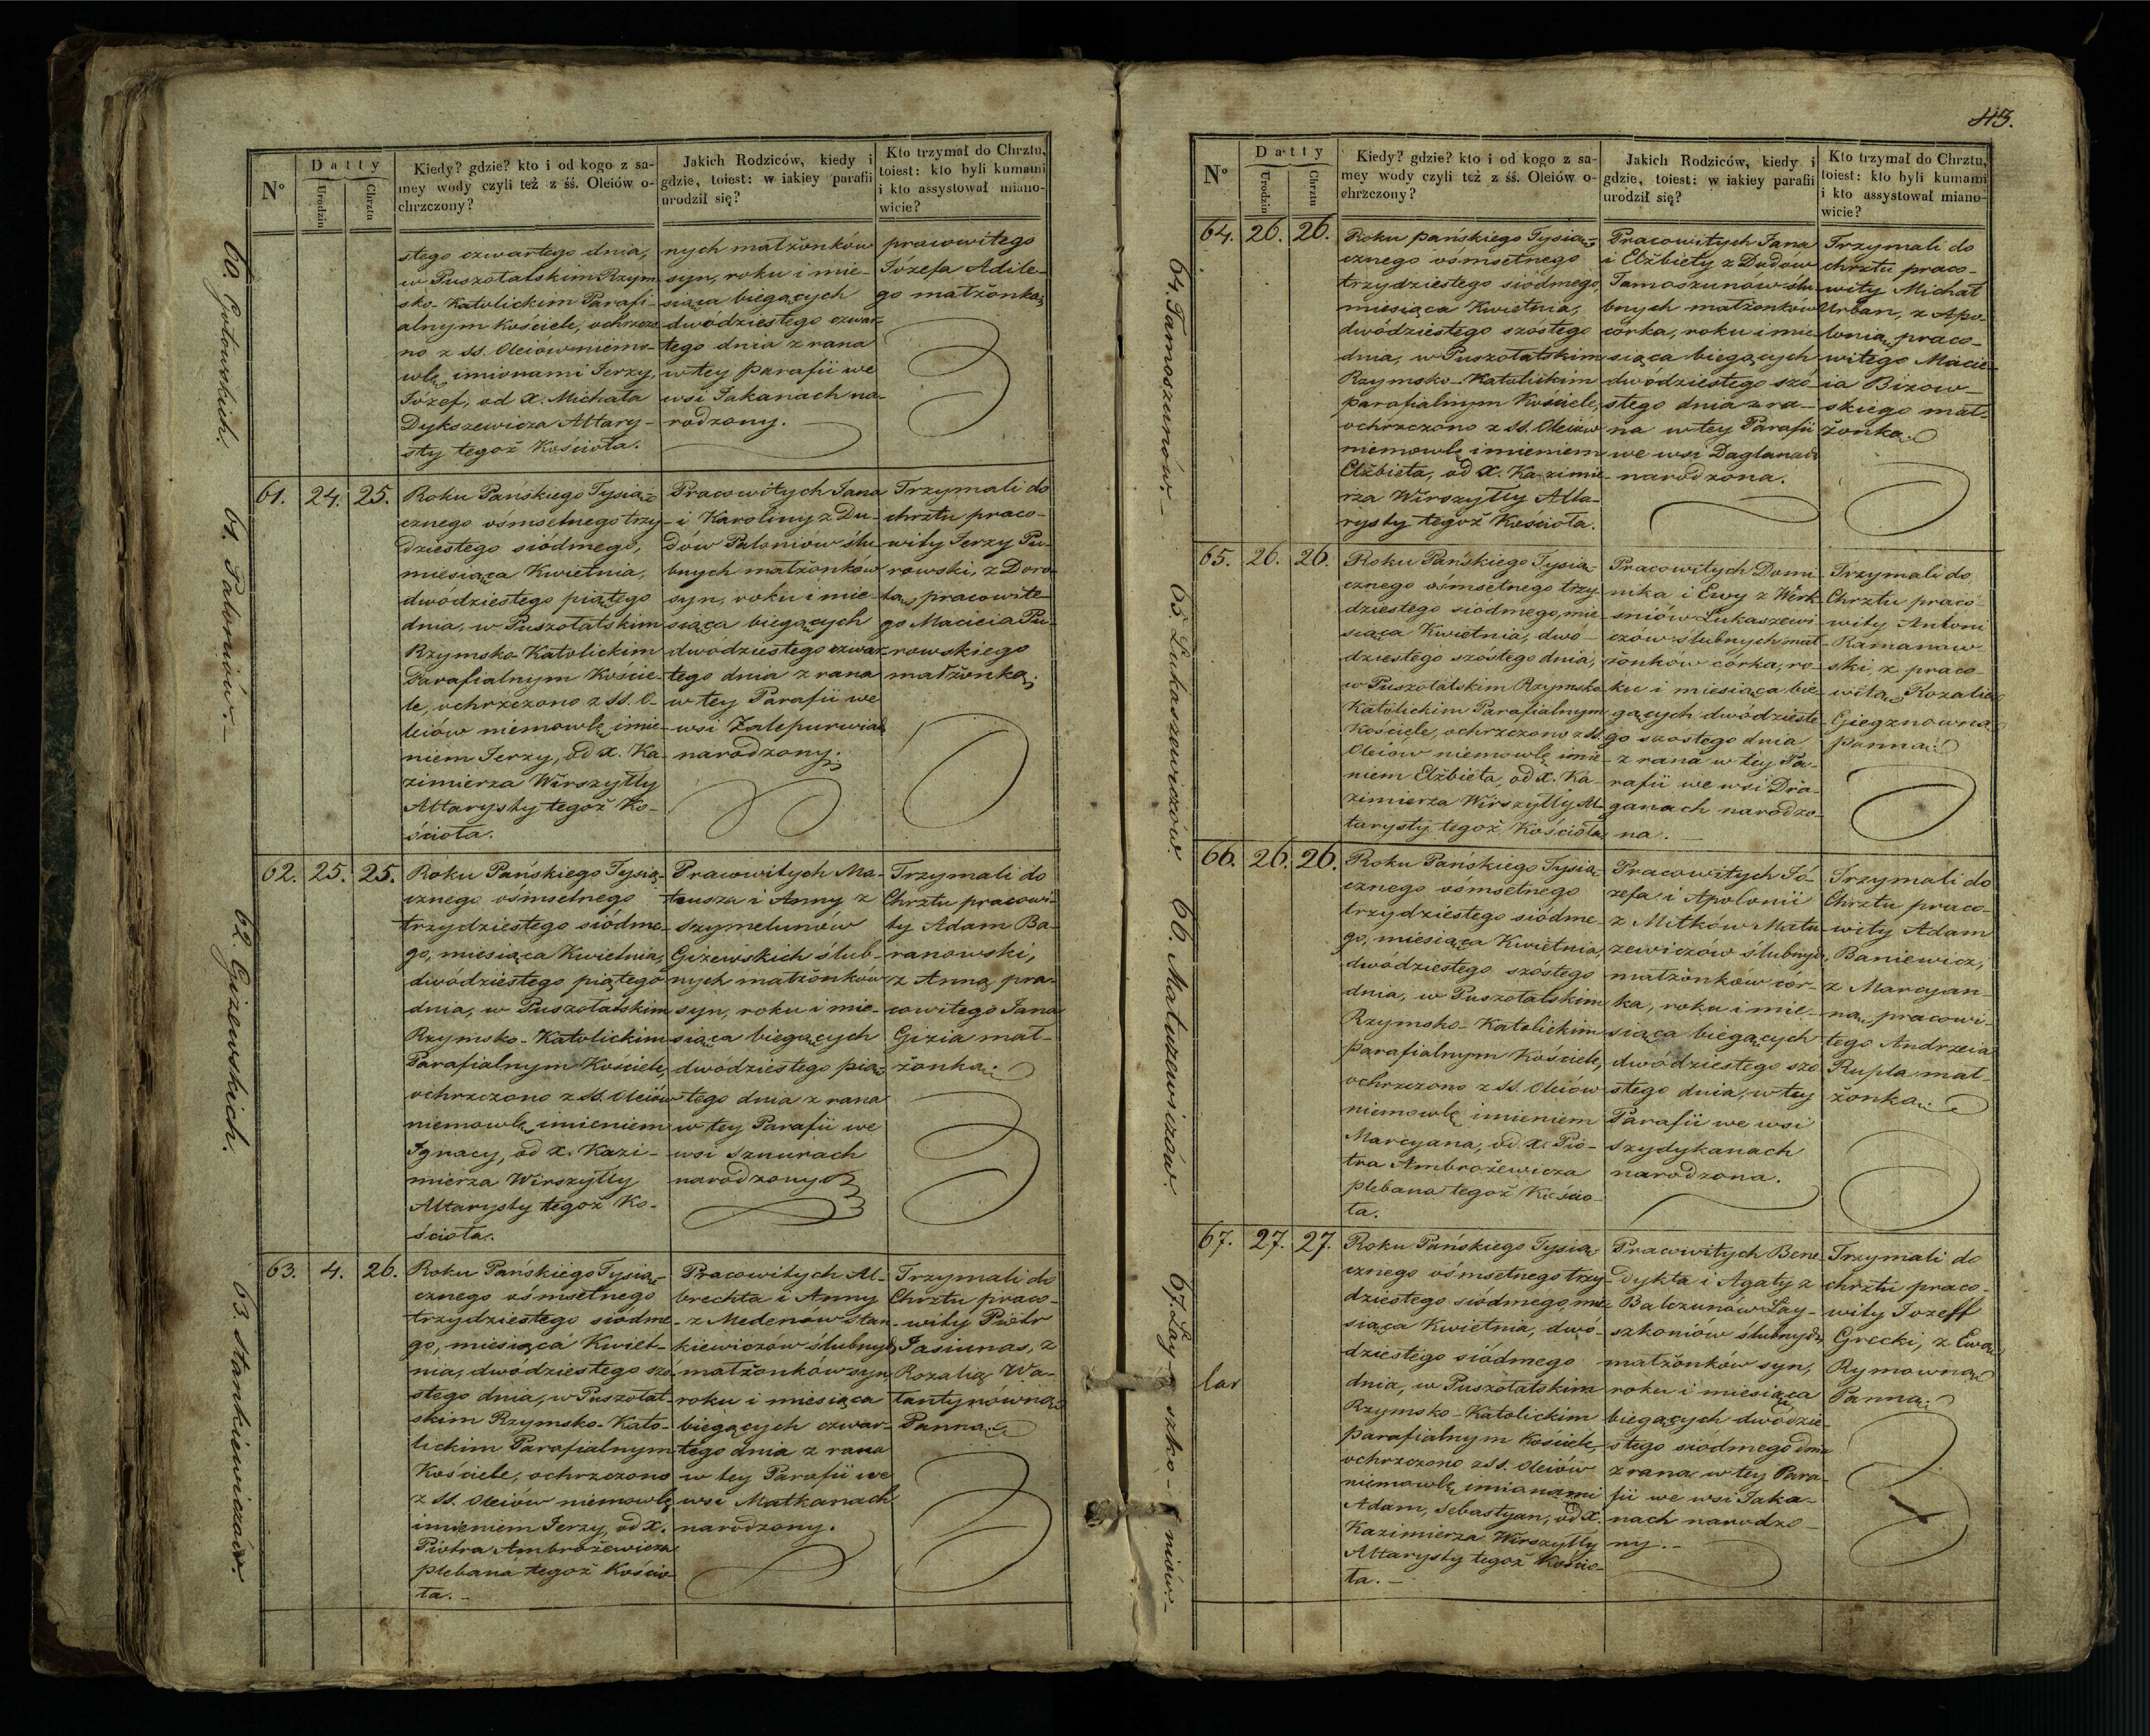 N°
Datty
Urodzin
Chrztu
Kiedy? gdzie? kto i od kogo z sa-
mey wody czyli też z śś. Oleiów o-
chrzczony?
Jakich Rodziców, kiedy i
gdzie, toiest: w iakiey parafii
urodził się?
Kto trzymał do Chrztu,
toiest: kto byli kumami
i kto assystował miano-
wicie?
60. Gutowskich.
stego czwartego dnia,
w Puszołatskim Rzym-
sko-Katolickim Parafi-
alnym Kościele, ochrzczo-
no z SS. Oleiów niemo-
wlę imionami Jerzy,
Józef, od X. Michała
Dykszewicza Altary-
sty tegoż Kościoła.
nych małżonków
syn, roku i mie-
siąca biegących
dwódziestego czwar-
tego dnia z rana
w tey parafii we
wsi Jakanach na-
rodzony.
pracowitego
Józefa Adile-
go małżonką
61. Patoniów.
61. 24. 25.
Roku Pańskiego Tysią-
cznego ośmsetnego trzy-
dziestego siódmego,
miesiąca Kwietnia,
dwódziestego piątego
dnia, w Puszołatskim
Rzymsko-Katolickim
Parafialnym Koście-
le, ochrzczono z SS. O-
leiów niemowlę imie-
niem Jerzy, od X. Ka-
zimierza Wirszyłły
Altarysty tegoż Ko-
ścioła.
Pracowitych Jana
i Karoliny z Du-
dów Patoniów ślu-
bnych małżonków
syn, roku i mie-
siąca biegących
dwódziestego czwar-
tego dnia z rana
w tey Parafii we
wsi Zalepurwiach
narodzony.
Trzymali do
chrztu praco-
wity Jerzy Pu-
rowski, z Doro-
tą, pracowite-
go Macieia Pu-
rowskiego
małżonką.
62. Giżewskich.
62. 25. 25.
Roku Pańskiego Tysią-
cznego ośmsetnego
trzydziestego siódme-
go, miesiąca Kwietnia,
dwódziestego piątego
dnia, w Puszołatskim
Rzymsko-Katolickim
Parafialnym Kościele,
ochrzczono z SS. Oleiów
niemowlę imieniem
Ignacy, od X. Kazi-
mierza Wirszyłły
Altarysty tegoż Ko-
ścioła.
Pracowitych Ma-
teusza i Anny z
Szymelunów
Giżewskich ślub-
nych małżonków
syn, roku i mie-
siąca biegących
dwódziestego pią-
tego dnia z rana
w tey Parafii we
wsi Sznurach
narodzony
Trzymali do
Chrztu pracowi-
ty Adam Ba-
ranowski,
z Anną pra-
cowitego Jana
Gizia mał-
żonką.
63. Stankiewiczów.
63. 4. 26.
Roku Pańskiego Tysią-
cznego ośmsetnego
trzydziestego siódme-
go, miesiąca Kwiet-
nia, dwódziestego szó-
stego dnia, w Puszołat-
skim Rzymsko-Kato-
lickim Parafialnym
Kościele, ochrzczono
z SS. Oleiów niemowlę
imieniem Jerzy, od X.
Piotra Ambrożewicza
plebana tegoż Kościo-
ła.
Pracowitych Al-
brechta i Anny
z Medenów Stan-
kiewiczów ślubnych
małżonków syn,
roku i miesiąca
biegących czwar-
tego dnia z rana
w tey Parafii we
wsi Matkanach
narodzony.
Trzymali do
Chrztu praco-
wity Piotr
Jasiunas, z
Rozalią Wa-
lantynówną
Panną.
43.
N°
Datty
Urodzin
Chrztu
Kiedy? gdzie? kto i od kogo z sa-
mey wody czyli też z śś. Oleiów o-
chrzczony?
Jakich Rodziców, kiedy i
gdzie, toiest: w iakiey parafii
urodził się?
Kto trzymał do Chrztu,
toiest: kto byli kumami
i kto assystował miano-
wicie?
64. Tamoszunów.
64. 26. 26.
Roku pańskiego Tysią-
cznego ośmsetnego
trzydziestego siódmego,
miesiąca Kwietnia,
dwódziestego szostego
dnia, w Puszołatskim
Rzymsko-Katolickim
parafialnym Kościele,
ochrzczono z SS. Oleiów
niemowlę imieniem
Elżbieta, od X. Kazimie-
rza Wirszyłły Alta-
rysty tegoż Kościoła.
Pracowitych Jana
i Elżbiety z Dudów
Tamoszunów ślu-
bnych małżonków
córka, roku i mie-
siąca biegących
dwódziestego szó-
stego dnia z ra-
na w tey Parafii
we wsi Daglanach
narodzona.
Trzymali do
chrztu praco-
wity Michał
Urban, z Apo-
lonią, praco-
witego Macie-
ia Bizow-
skiego mał-
żonką.
65. Łukaszewiczów.
65. 26. 26.
Roku Pańskiego Tysią-
cznego ośmsetnego trzy-
dziestego siódmego, mie-
siąca Kwietnia, dwó-
dziestego szóstego dnia,
w Puszołatskim Rzymsko
Katolickim Parafialnym
Kościele, ochrzczono z SS.
Oleiow niemowlę imie-
niem Elżbieta, od X. Ka-
zimierza Wirszyłły Al-
tarysty tegoż Kościoła
Pracowitych Domi-
nika i Ewy z Werk-
sniów Łukaszewi-
czów ślubnych mał-
żonków córka, ro-
ku i miesiąca bie-
gących dwódzieste-
go szostego dnia
z rana w tey Pa-
rafii we wsi Dra-
ganach narodzo-
na.
Trzymali do
Chrztu praco-
wity Antoni
Ramanow-
ski, z praco-
witą Rozalią
Giegznowną
panną.
66. Matuzewiczów.
66. 26. 26.
Roku Pańskiego Tysią-
cznego ośmsetnego
trzydziestego siódme-
go, miesiąca Kwietnia,
dwódziestego szóstego
dnia, w Puszołatskim
Rzymsko-Katolickim
parafialnym Kościele,
ochrzczono z SS. Oleiów
niemowlę imieniem
Marcyana, od X. Pio-
tra Ambrożewicza
plebana tegoż Kościo-
ła.
Pracowitych Jó-
zefa i Apolonii
z Mitków Matu-
zewiczów ślubnych
małżonków cór-
ka, roku i mie-
siąca biegących
dwódziestego szó-
stego dnia, w tey
Parafii we wsi
Szydykanach
narodzona.
Trzymali do
Chrztu praco-
wity Adam
Baniewicz,
z Marcyan-
ną, pracowi-
tego Andrzeia
Rupla mał-
żonką.
67. Łay-szko-niów.
67. 27. 27.
Roku Pańskiego Tysią-
cznego ośmsetnego trzy-
dziestego siódmego, mie-
siąca Kwietnia, dwó-
dziestego siódmego
dnia, w Puszołatskim
Rzymsko-Katolickim
parafialnym Kościele,
ochrzczono z SS. Oleiów
niemowlę imionami
Adam, Sebastyan, od X.
Kazimierza Wirszyłły
Altarysty tegoż Kościo-
ła.
Pracowitych Bene-
dykta i Agaty z
Balczunów Łay-
szkoniów ślubnych
małżonków syn,
roku i miesiąca
biegących dwódzie-
stego siódmego dnia
z rana w tey Para-
fii we wsi Jaka-
nach narodzo-
ny.
Trzymali do
chrztu praco-
wity Jozeff
Grecki, z Ewą
Rymowną
Panną.